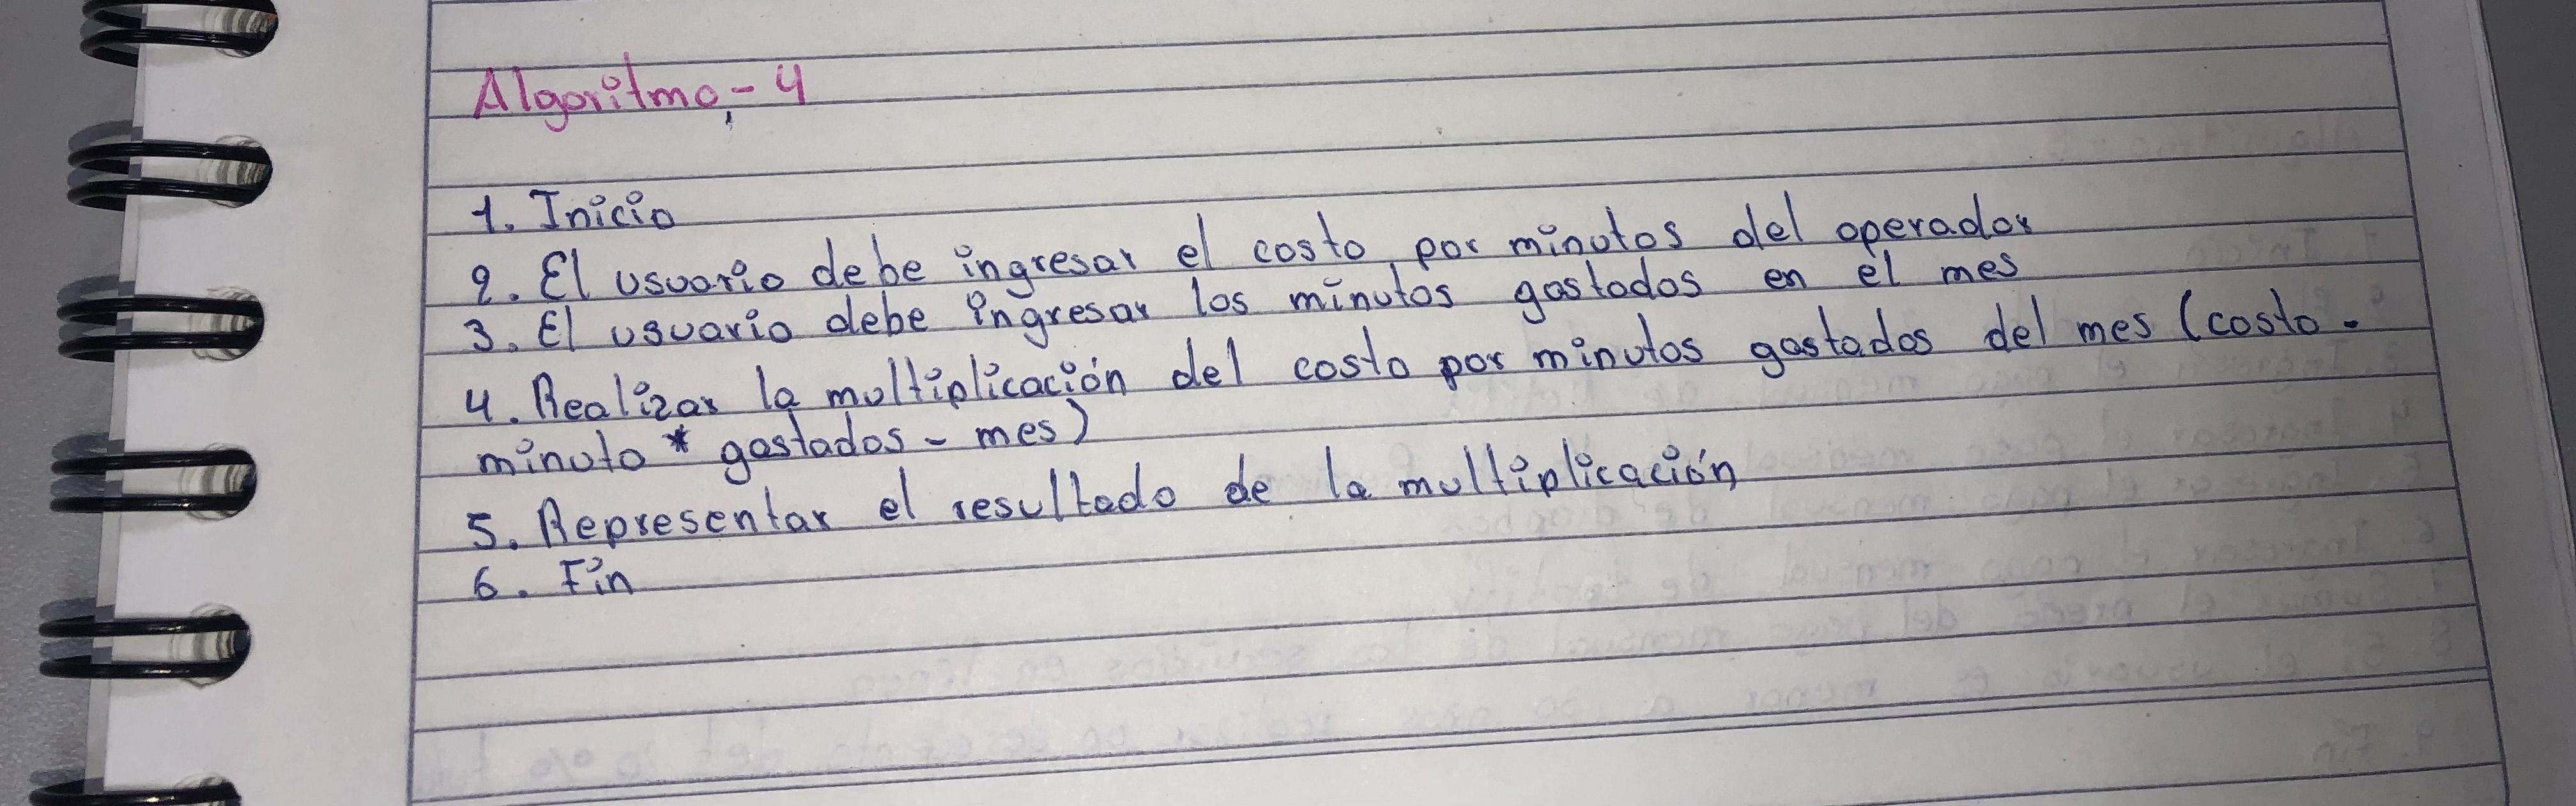 Algoritmo - 4
1. Inicio
2. El usuario debe ingresar el costo por minutos del operador
3. El usuario debe ingresar los minutos gastados en el mes
4. Realizar la multiplicación del costo por minutos gastados del mes (costo -
minuto * gastados - mes)
5. Representar el resultado de la multiplicación
6. Fin